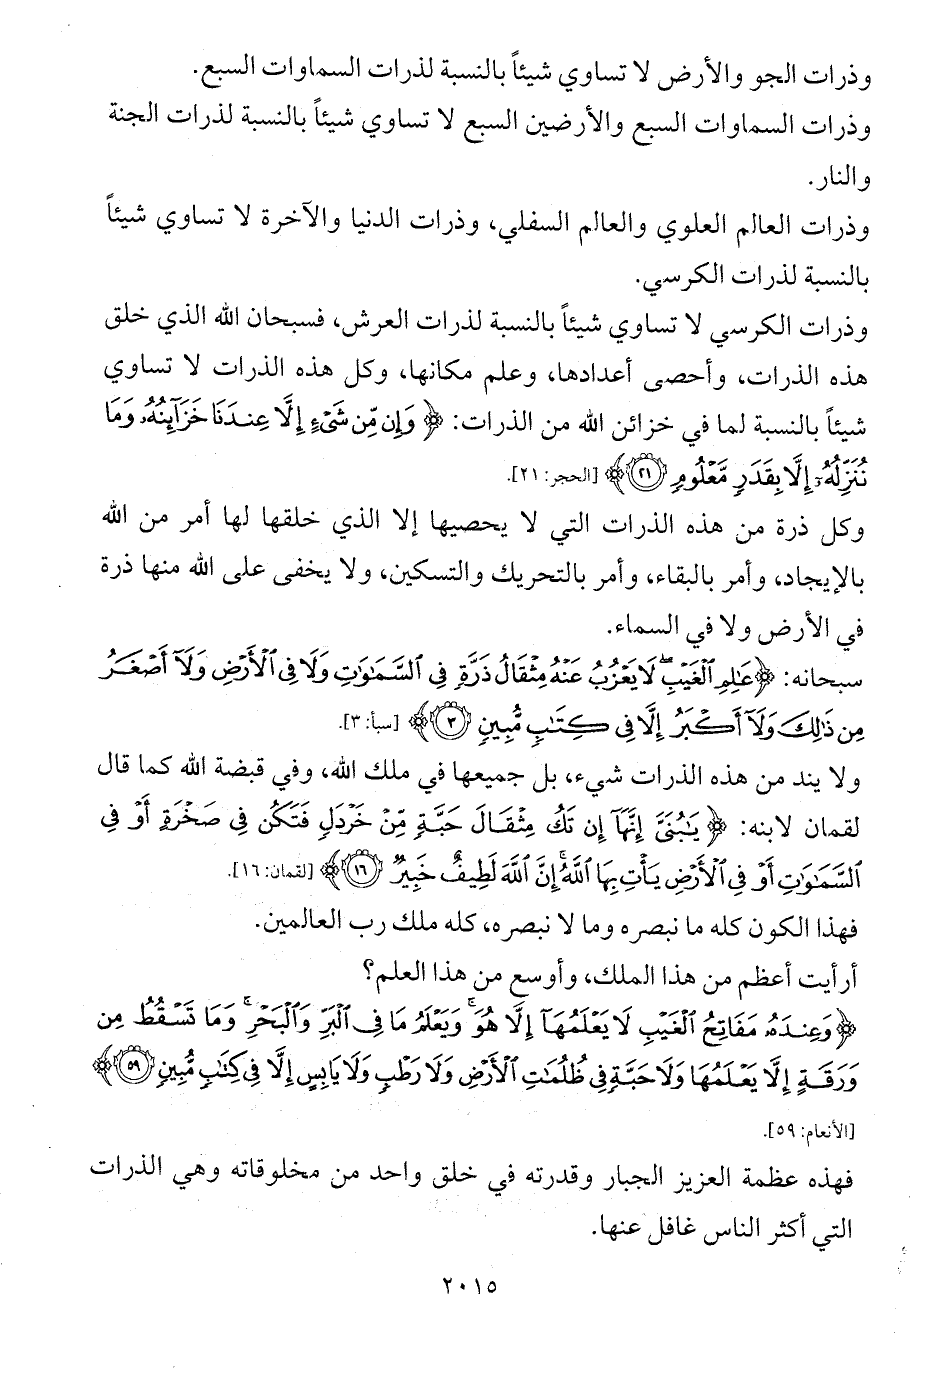 وذرات الجو والأرض لا تساوي شيئاً بالنسبة لذرات السماوات السبع.
وذرات السماوات السبع والأرضين السبع لا تساوي شيئاً بالنسبة لذرات الجنة
والنار.
وذرات العالم العلوي والعالم السفلي، وذرات الدنيا والآخرة لا تساوي شيئاً
بالنسبة لذرات الكرسي.
وذرات الكرسي لا تساوي شيئاً بالنسبة لذرات العرش، فسبحان الله الذي خلق
هذه الذرات، وأحصى أعدادها، وعلم مكانها، وكل هذه الذرات لا تساوي
شيئاً بالنسبة لما في خزائن الله من الذرات: ﴿ وَإِن مِّن شَىْءٍ إِلَّا عِندَنَا خَزَآئِنُهُۥ وَمَا
نُنَزِّلُهُۥٓ إِلَّا بِقَدَرٍ مَّعْلُومٍ ٢١ ﴾ [الحجر: ٢١].
وكل ذرة من هذه الذرات التي لا يحصيها إلا الذي خلقها لها أمر من الله
بالإيجاد، وأمر بالبقاء، وأمر بالتحريك والتسكين، ولا يخفى على الله منها ذرة
في الأرض ولا في السماء.
سبحانه: ﴿ عَٰلِمِ ٱلْغَيْبِ ۖ لَا يَعْزُبُ عَنْهُ مِثْقَالُ ذَرَّةٍ فِى ٱلسَّمَٰوَٰتِ وَلَا فِى ٱلْأَرْضِ وَلَآ أَصْغَرُ
مِن ذَٰلِكَ وَلَآ أَكْبَرُ إِلَّا فِى كِتَٰبٍ مُّبِينٍ ٣ ﴾ [سبأ: ٣].
ولا يند من هذه الذرات شيء، بل جميعها في ملك الله، وفي قبضة الله كما قال
لقمان لابنه: ﴿ يَٰبُنَىَّ إِنَّهَآ إِن تَكُ مِثْقَالَ حَبَّةٍ مِّنْ خَرْدَلٍ فَتَكُن فِى صَخْرَةٍ أَوْ فِى
ٱلسَّمَٰوَٰتِ أَوْ فِى ٱلْأَرْضِ يَأْتِ بِهَا ٱللَّهُ ۚ إِنَّ ٱللَّهَ لَطِيفٌ خَبِيرٌ ١٦ ﴾ [لقمان: ١٦].
فهذا الكون كله ما نبصره وما لا نبصره، كله ملك رب العالمين.
أرأيت أعظم من هذا الملك، وأوسع من هذا العلم؟
﴿ وَعِندَهُۥ مَفَاتِحُ ٱلْغَيْبِ لَا يَعْلَمُهَآ إِلَّا هُوَ ۚ وَيَعْلَمُ مَا فِى ٱلْبَرِّ وَٱلْبَحْرِ ۚ وَمَا تَسْقُطُ مِن
وَرَقَةٍ إِلَّا يَعْلَمُهَا وَلَا حَبَّةٍ فِى ظُلُمَٰتِ ٱلْأَرْضِ وَلَا رَطْبٍ وَلَا يَابِسٍ إِلَّا فِى كِتَٰبٍ مُّبِينٍ ٥٩ ﴾
[الأنعام: ٥٩].
فهذه عظمة العزيز الجبار وقدرته في خلق واحد من مخلوقاته وهي الذرات
التي أكثر الناس غافل عنها.
٢٠١٥